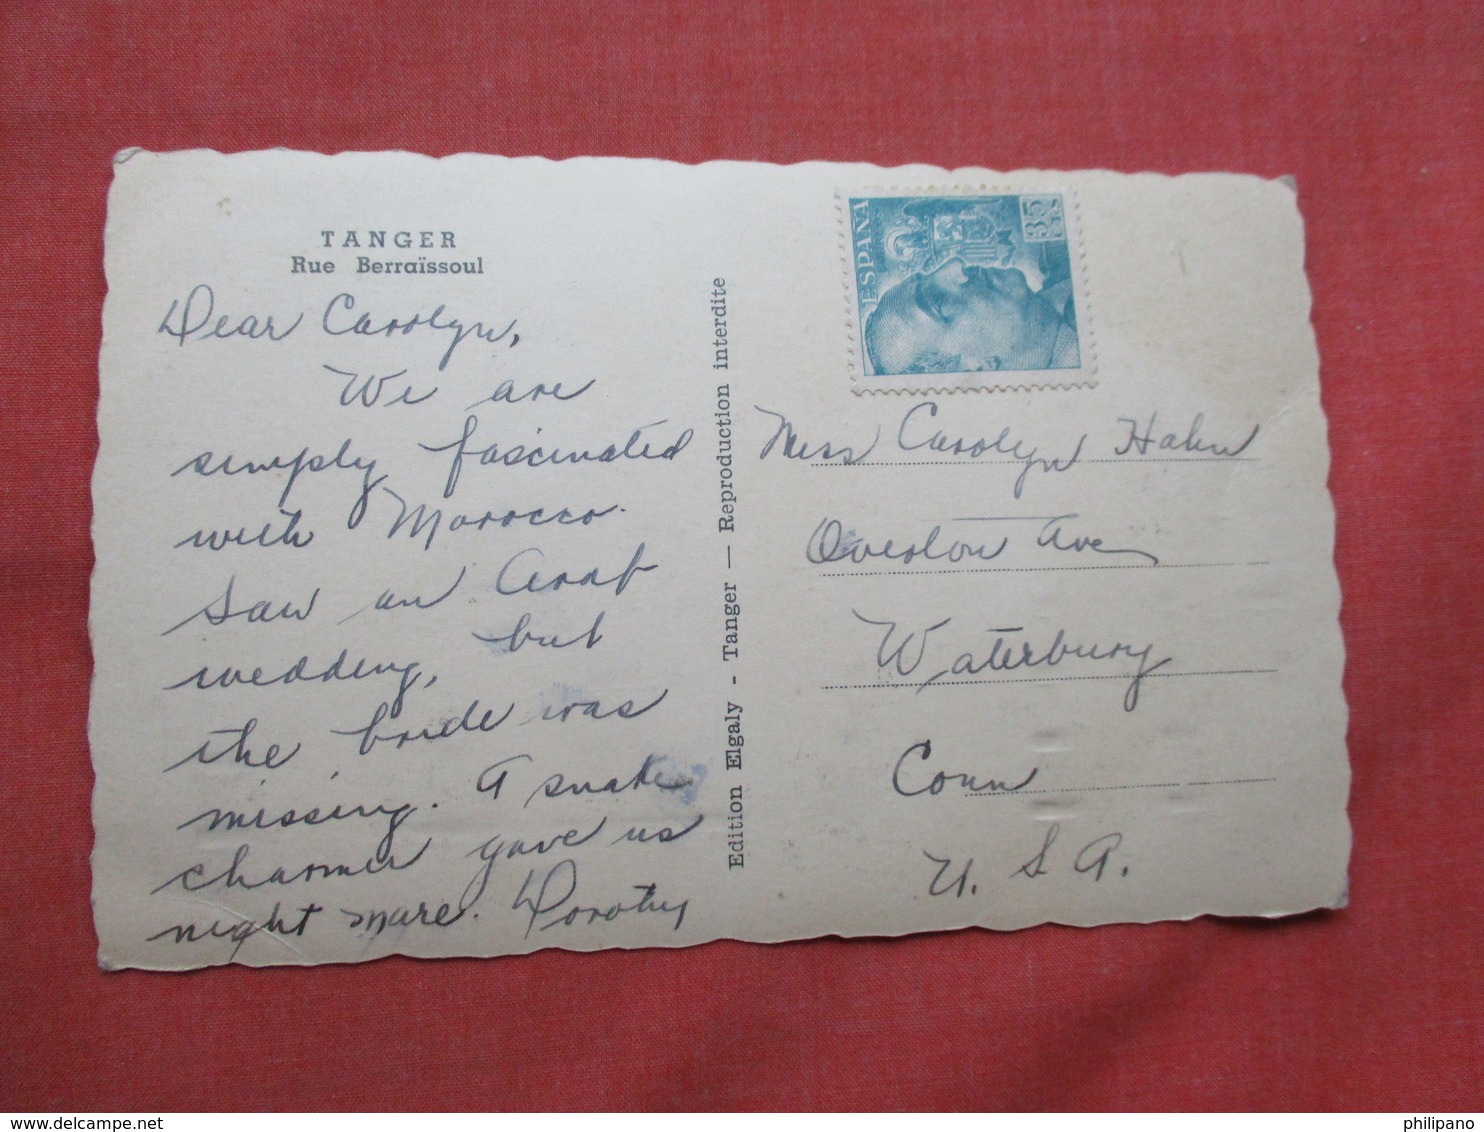 TANGER
Rue Berraïssoul
Dear Carolyn,
We are
simply fascinated
with Morocco.
Saw an Arab
wedding, but
the bride was
missing. A snake
charmer gave us
night mare. Dorothy
Edition Elgaly - Tanger — Reproduction interdite
ESPAÑA
35
CTS
Miss Carolyn Hahn
Overton Ave
Waterbury
Conn
U. S. A.
philipano